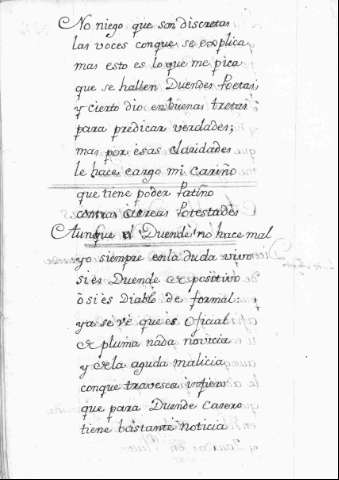 No niego que son discretas
las voces conque se explica
mas esto es lo que me pica
que se hallen Duendes Poetas
y cierto dio en buenas tretas
para predicar verdades;
mas por esas claridades
le hace cargo mi cariño
que tiene poder Patiño
contra aereas Potestades
Aunque el Duende no hace mal
yo siempre en la duda vivo
si es Duende positivo
ò si es Diablo de formal
ya se vè que es oficial
de pluma nada novicia
y de la aguda malicia
conque travesea infiero
que para Duende Casero
tiene bastante noticia